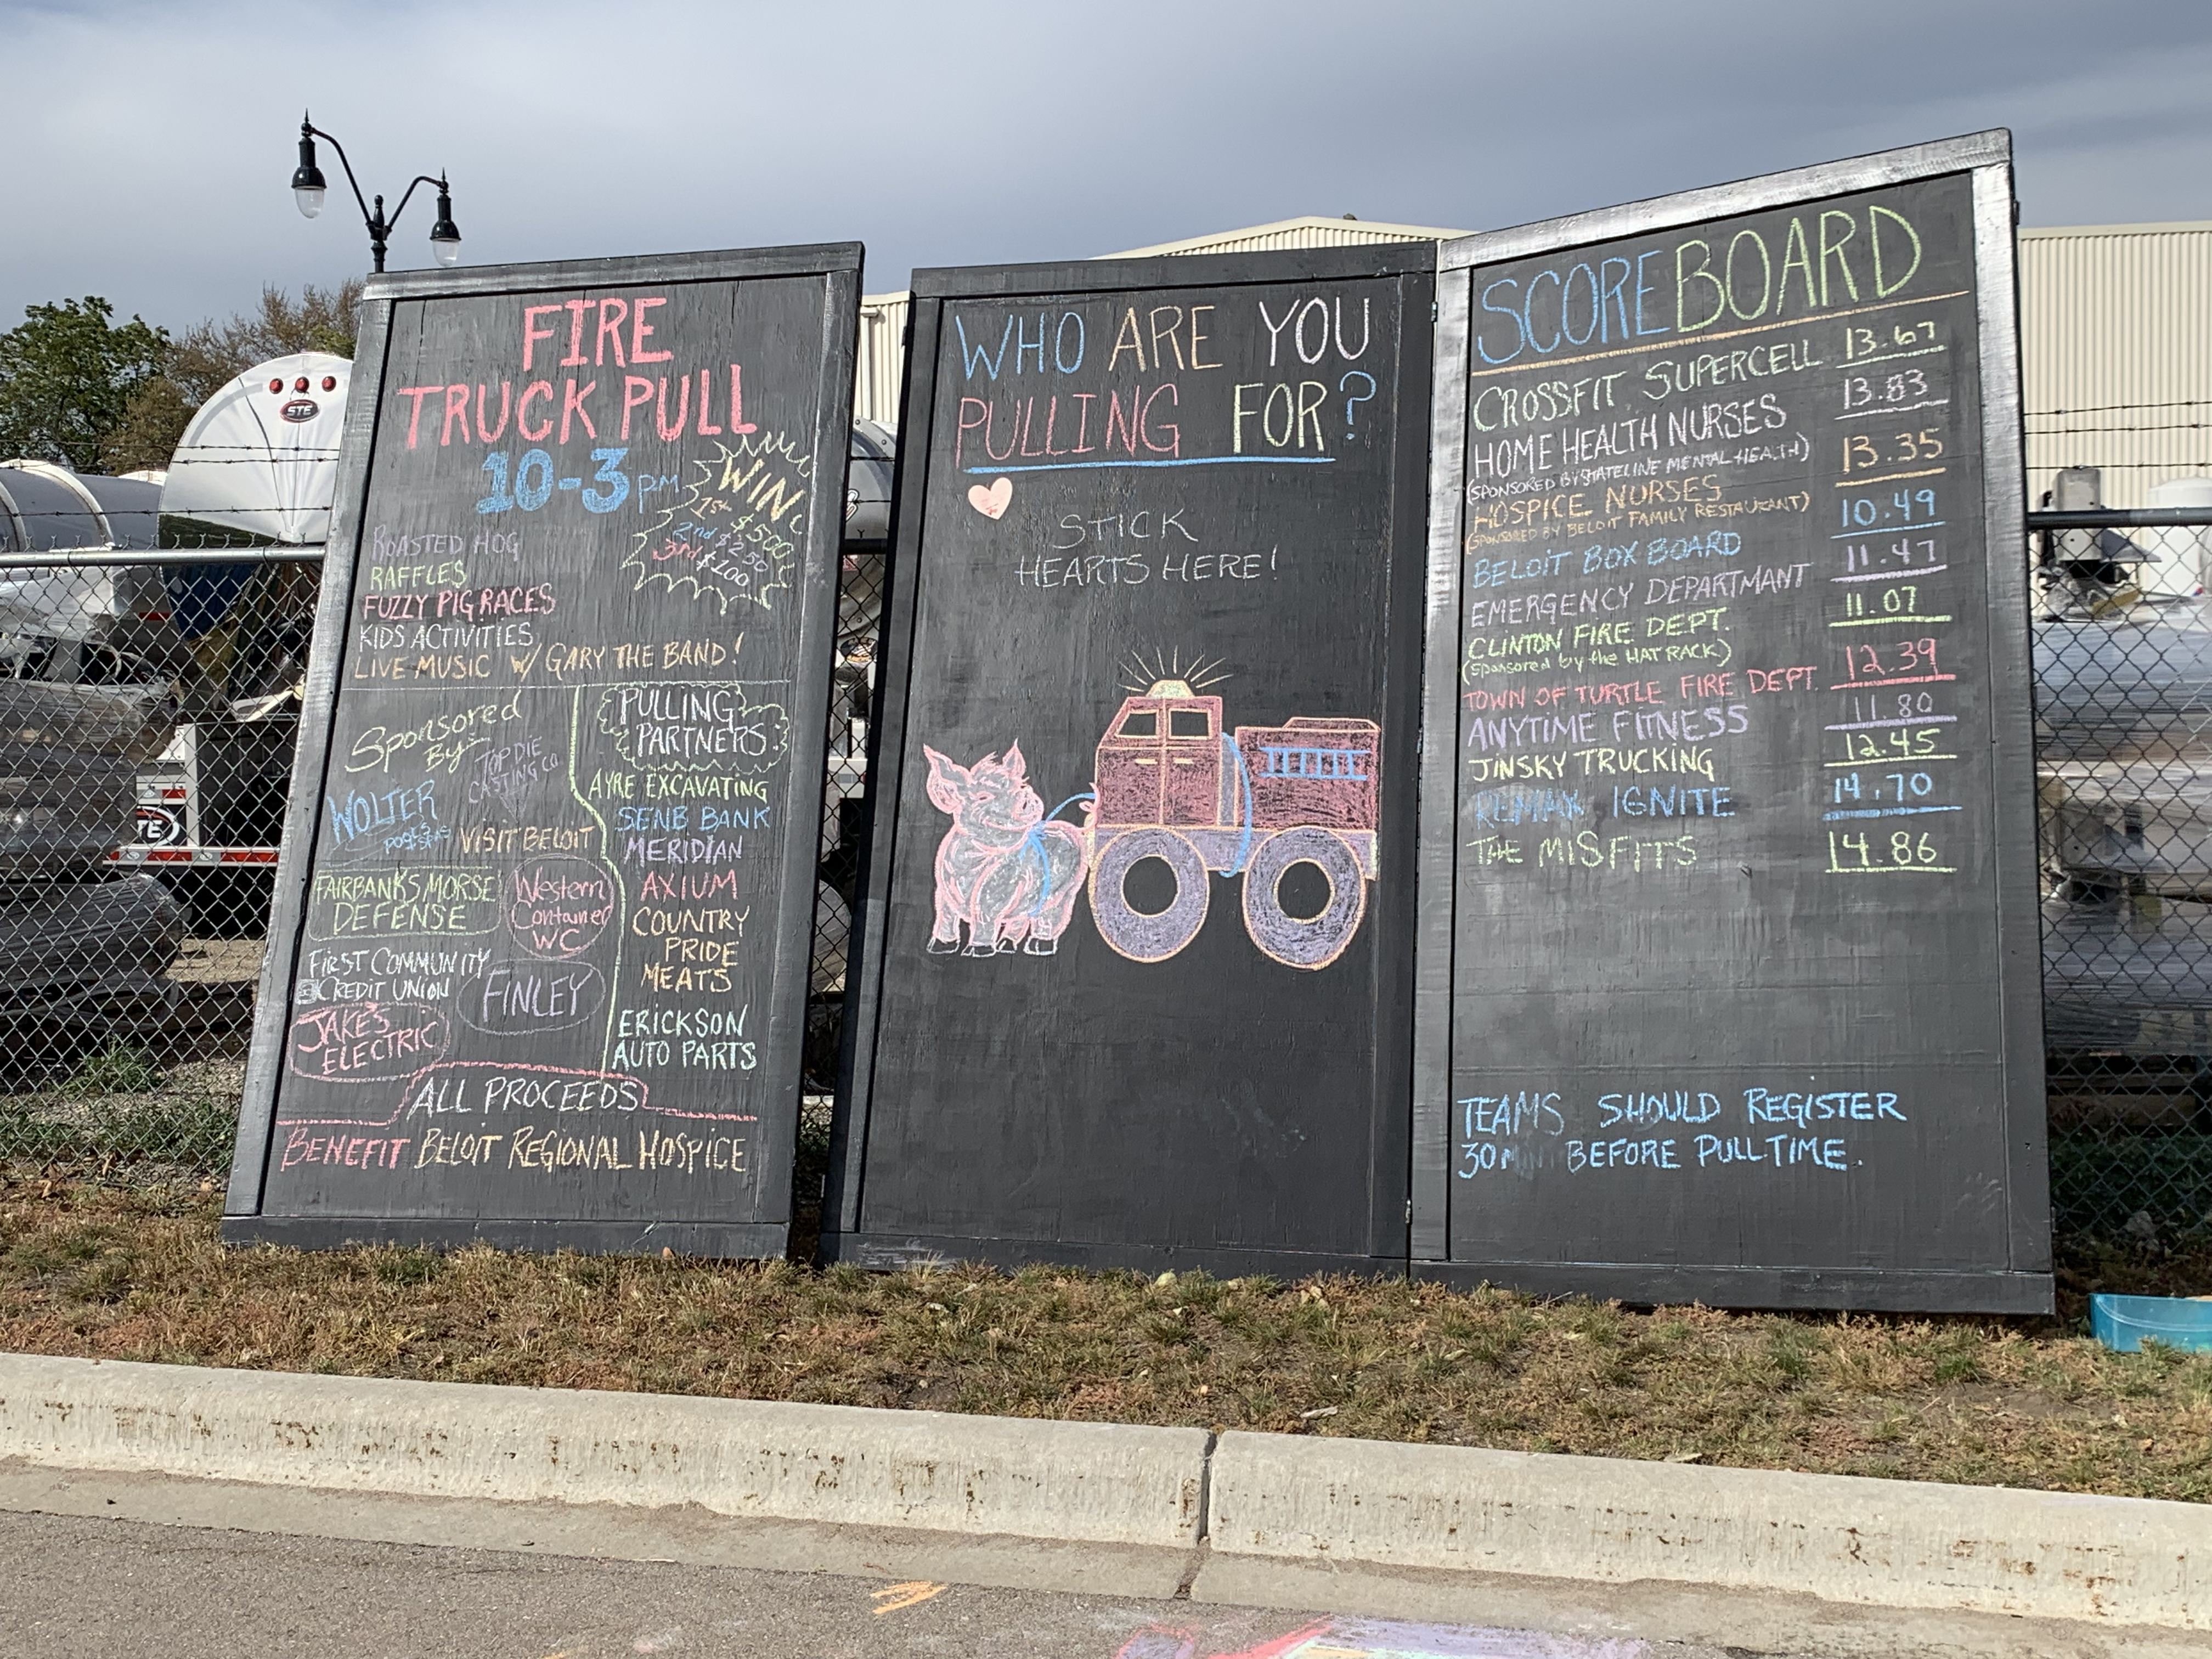 FIRE
TRUCK PULL
10-3 PM
WIN
1st $500
2nd $250
3rd $100
ROASTED HOG
RAFFLES
FUZZY PIG RACES
KIDS ACTIVITIES
LIVE MUSIC W/ GARY THE BAND!
Sponsored
By
TOP DIE
CASTING CO
WOLTER
VISIT BELOIT
FAIRBANKS MORSE
DEFENSE
Western
Container
WC
FIRST COMMUNITY
CREDIT UNION
FINLEY
JAKE'S
ELECTRIC
PULLING
PARTNERS
AYRE EXCAVATING
SENB BANK
MERIDIAN
AXIUM
COUNTRY
PRIDE
MEATS
ERICKSON
AUTO PARTS
ALL PROCEEDS
BENEFIT BELOIT REGIONAL HOSPICE
WHO ARE YOU
PULLING FOR?
STICK
HEARTS HERE!
SCOREBOARD
CROSSFIT SUPERCELL 13.67
HOME HEALTH NURSES 13.83
(SPONSORED BY STATELINE MENTAL HEALTH)
HOSPICE NURSES 13.35
(SPONSORED BY BELOIT FAMILY RESTAURANT)
BELOIT BOX BOARD 10.49
EMERGENCY DEPARTMANT 11.47
CLINTON FIRE DEPT. 11.07
(sponsored by the HAT RACK)
TOWN OF TURTLE FIRE DEPT. 12.39
ANYTIME FITNESS 11.80
JINSKY TRUCKING 12.45
REMAX IGNITE 14.70
THE MISFITS 14.86
TEAMS SHOULD REGISTER
30 MIN BEFORE PULL TIME.
STE